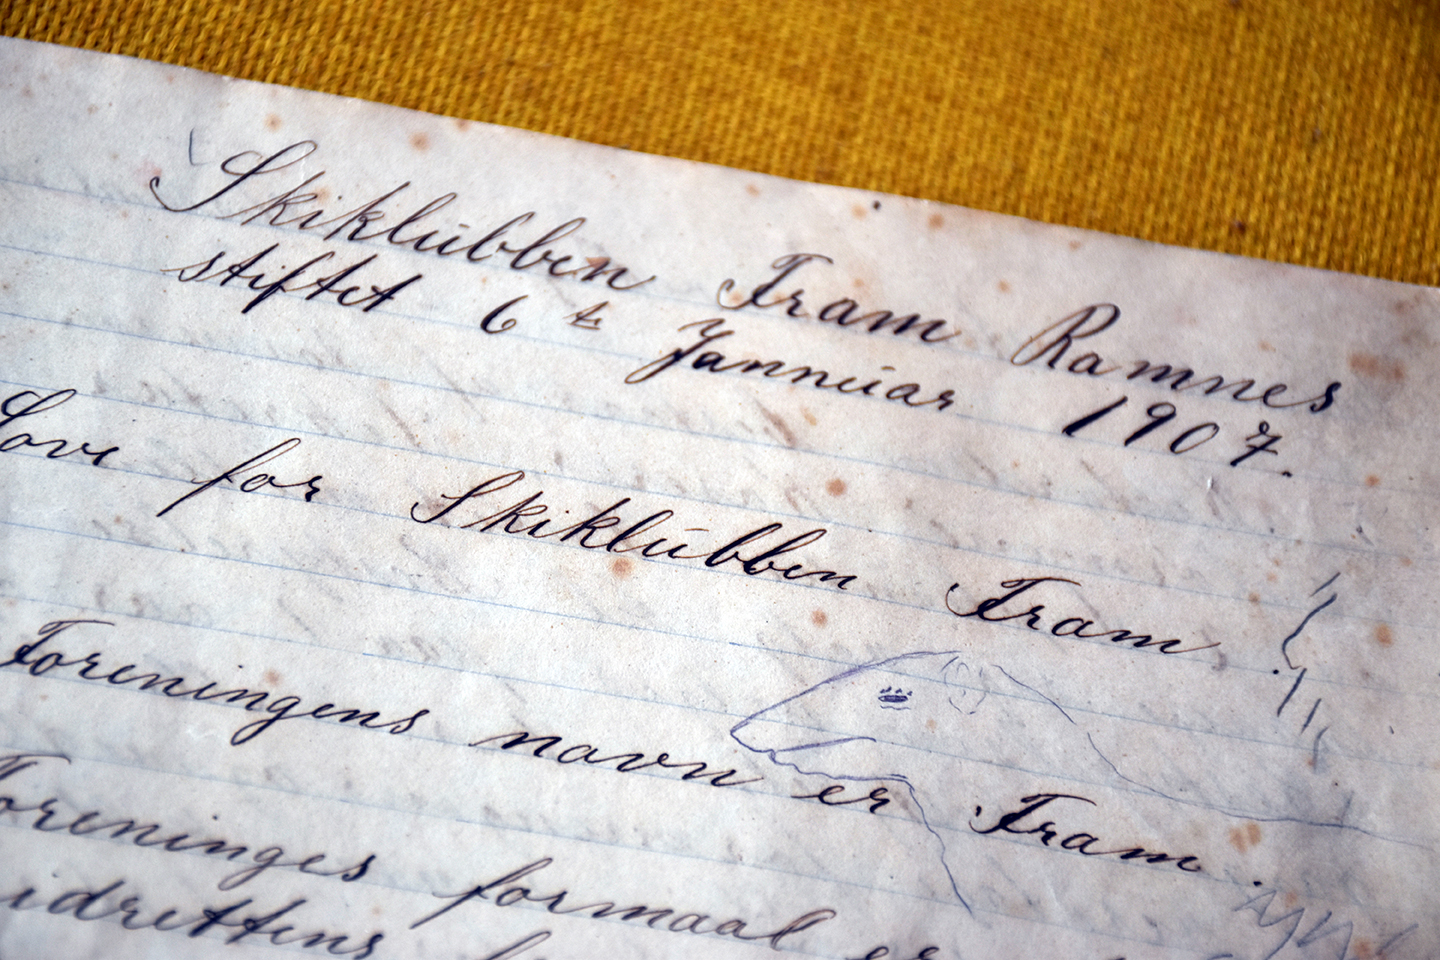 Skiklúbben Fram Ramnes
stiftet 6 t Jannúar 1907.
Love for Skiklúbben Fram.
Foreningens navn er Fram.
Foreninges formaal er
idrettens